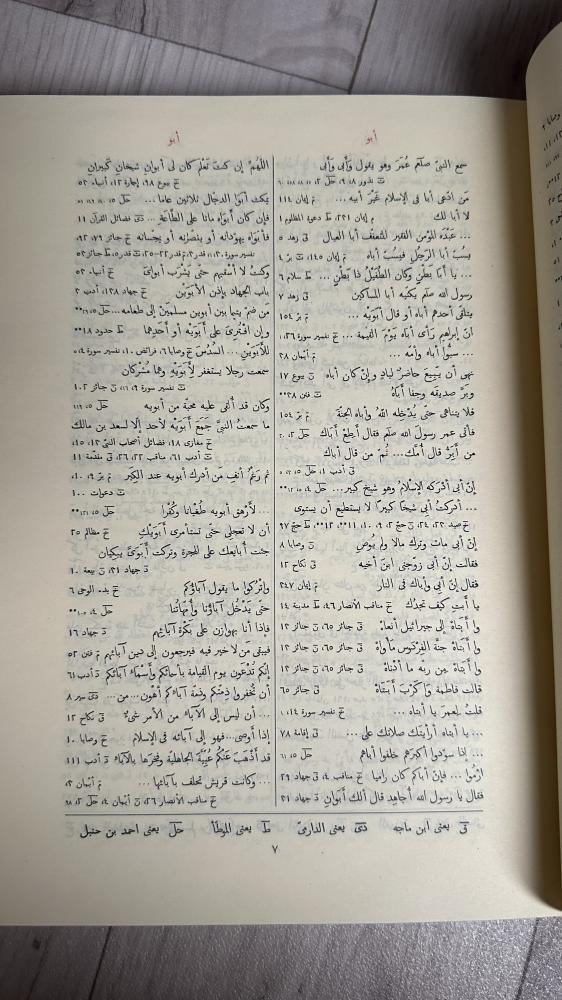 أبو
سمع النبيّ صلعم عُمَرَ وهو يقول وَأَبِى وَأَبِى
مَن ادّعى أبا فى الإسلام غَيْرَ أبيه ... م إيمان ١١٤
لا أبا لك م إيمان ٢٣١، ط دعوة المظلوم ١
... عَبْدَه المؤمن الفقير المتعفّف أبا العيال ق زهد ٥
يسبّ أبا الرَجُل فيسبّ أباه م إيمان ١٤٥، ت برّ ٤
... يا أبا بَطْنٍ وكان الطُفَيْلُ ذا بَطْنٍ ... ط سلام ٦
رسول الله صلعم يكنّيه أبا المساكين ق زهد ٧
يتلقى أحدهم أباه أو قال أبَوَيْه ... م برّ ١٥٤
انّ إبراهيم رأى أباه يَوْمَ القيمة ... خ تفسير سورة ٢٦، ١
... سبّوا أباه وأمّه ... م أيمان ٣٨
نهى أن يَبِيعَ حاضرٌ لبادٍ وإنْ كان أباه ن بيوع ١٧
وبرّ صديقَه وجفا أَبَاهُ ت فتن ٣٨**
فلا يتناهى حتى يُدْخِلَه اللهُ وأباه الجنّةَ م برّ ١٥٤
فأتى عمر رسولَ الله صلعم فقال أَطِعْ أَبَاكَ حل ٢، ٢٠
من أَبَرُّ قال أُمَّك ... ثُمّ من قال أباك
ق أدب ١، حل ٥، ٣، ٥
إنّ أبى أدْرَكه الإسلامُ وهو شيخ كبير... حل ٤، ٥، ٣**
... أدركتْ أبى شيخًا كبيرًا لا يستطيع أن يستوى
خ صيد ٢٣، ٢٤، ن حج ٢، ٩، ١٠، ١١**، ١٢**، ط حج ٩٧
إنّ أبى مات وترك مالا ولم يُوصِ ن وصايا ٨
فقالت إنّ أبى زوّجنى ابنَ أخيه ق نكاح ١٢
فقال إنّ أبى وأباك فى النار م إيمان ٣٤٧
يا أَبَتِ كيف تجدُك خ مناقب الأنصار ٤٦، ط مدينة ١٤
وا أَبَتَاهْ إلى جبرائيل أنعاهْ ق جنائز ٦٥، ن جنائز ١٣
وا أَبَتَاهْ جنّة الفِرْدَوْسِ مأْواهْ ق جنائز ٦٥، ن جنائز ١٣
وا أَبَتَاهْ من ربّه ما أدْناهْ ق جنائز ٦٥، ن جنائز ١٣
قالت فاطمة وَا كَرْبَ أَبَتَاهُ ق جنائز ٦٥
قلتُ لعمرَ يا أبتاه ... خ تفسير سورة ٤، ١
... يا أبتاه أَرَأَيْتَك صلاتَك على ... ق إقامة ٧٨
... إذا سوّدوا أكبرَهم خلفوا أباهم حل ٥، ٦١
ارْمُوا ... فإنّ أباكم كان راميا خ مناقب ٤، جهاد ٢٩
فقال يا رسول الله أُجاهِدُ قال ألك أَبَوانِ د جهاد ٣١
أبو
اللّهُمَّ إن كنتَ تَعْلَم كان لى أَبوانِ شيخانِ كَبيرانِ
خ بيوع ٩٨، إجارة ١٢، أنبياء ٥٣
يمكث أَبَوَا الدجّال ثلاثين عاما ...
فإن كان أَبَوَاهُ ماتا على الطَاعةِ ... دى فضائل القرآن ١١
فأَبَوَاهُ يهوّدانه أو ينصّرانه أو يمجّسانه خ جنائز ٧٩، ٩٢،
تفسير سورة ٣٠، ١، قدر ٣، م قدر ٢٢–٢٥، ت قدر ٥، ط جنائز ٥٢
وكنتُ لا أسقيهم حتّى يَشْرَبَ أَبَوَاىَ خ أنبياء ٥٣
باب الجهاد بإذن الأَبَوَيْنِ خ جهاد ١٣٨، أدب ٣
من ضمّ يتيما بين أَبَوين مسلميْنِ إلى طعامه...
وإن افْتُرِىَ على أَبَوَيْه أو أَحَدِهما ط حدود ١٨
للأَبَوَيْنِ... السُدُسَ خ وصايا ٦، فرائض ١٠، تفسير سورة ٤، ٥
سمعت رجلا يستغفر لأَبَوَيْهِ وهما مُشْرِكان
ت تفسير سورة ٩، ١٦، ن جنائز ١٠٢
وكان قد أُلقى عليه محبّة من أبويه
ما سمعتُ النبىَّ جَمَعَ أَبَوَيْهِ لأحد إلا لسعد بن مالك
خ مغازى ١٨، فضائل أصحاب النبىّ ١٣، ١٥،
ت أدب ٦١، مناقب ٢٢، ٢٦، ق مقدّمة ١١
ثم رَغِمَ أنفُ من أدرك أبويه عند الكِبَرِ م برّ ٩، ١٠،
ت دعوات ١٠٠
...لأَرْهَقَ أبويه طُغْيانًا وكُفْرًا حل ٥، ١٢١**
أن لا تعجلى حتّى تستأمرى أَبَوَيْكِ خ مظالم ٢٥
جئت أُبايعك على الهجرة وتركت أَبَوَىَّ يبكيان
د جهاد ٣١، ن بيعة ١٠
واتْركوا ما يقول آباؤكم خ بدء الوحى ٦
حتّى يَدْخُلَ آباؤنا وأُمَّهاتُنا
فإذا أنا بهوازن على بَكْرَةِ آبائِهم د جهاد ١٦
فيبقى من لا خير فيه فيرجعون إلى دين آبائهم م فتن ٥٢
إنّكم تُدْعَوْن يوم القيامة بأسمائكم وأَسْماءِ آبائكم د أدب ٦١
أن تُخْفروا ذِمَمَكم وذمّةَ آباءكم أهون...من... دى سير ٨
... أن ليس إلى الآباء من الأمر شىءٌ ق نكاح ١٢
إذا أوصى...فهو إلى آبائه فى الإسلام خ وصايا ١٠
قد أَذْهَبَ عنكم عُبِّيَّةَ الجاهليّة وفخرَها بالآباء د أدب ١١١
... وكانت قريش تحلف بآبائها... م أيمان ٣،
خ مناقب الأنصار ٢٦، ن أيمان ٤، حل ٢، ٩٨
ق يعنى ابن ماجه دى يعنى الدارمىّ ط يعنى الموطّأ حل يعنى احمد بن حنبل
٧